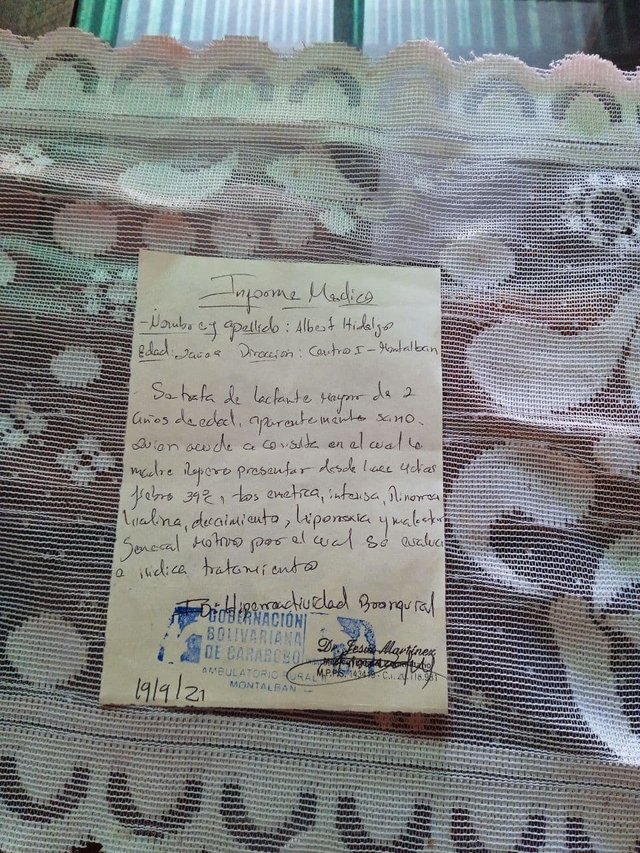 Informe Medico
- Nombre y apellido: Albert Hidalgo
Edad: 2años Direccion: Centro I - Montalban
Se trata de lactante mayor de 2
años de edad, aparentemente sano.
Quien acude a consulta en el cual la
madre refiere presentar desde hace 4 dias
fiebre 39º, tos emetica, intensa, Rinorrea
hialina, decaimiento, hiporexia y malestar
General motivo por el cual se evalua
e indica tratamiento
IDx: Hiperreactividad Bronquial
GOBERNACIÓN
BOLIVARIANA
DE CARABOBO
AMBULATORIO RURAL
MONTALBAN
Dr. Jesús Martínez
M.P.P.S. 143419 - C.I. 20.118.981
19/9/21